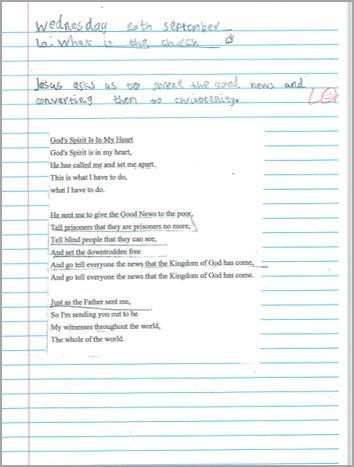 Wednesday 20th September
L.: What is the church
Jesus asks us to spread the good news and
converting them to christianity.
God's Spirit Is In My Heart
God's Spirit is in my heart,
He has called me and set me apart.
This is what I have to do,
what I have to do.
He sent me to give the Good News to the poor,
Tell prisoners that they are prisoners no more,
Tell blind people that they can see,
And set the downtrodden free
And go tell everyone the news that the Kingdom of God has come,
And go tell everyone the news that the Kingdom of God has come.
Just as the Father sent me,
So I'm sending you out to be
My witnesses throughout the world,
The whole of the world.